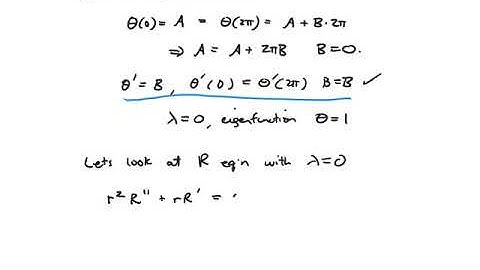 Θ(0) = A = Θ(2π) = A + B·2π
⇒ A = A + 2πB B = 0.
Θ' = B, Θ'(0) = Θ'(2π) B = B ✓
λ = 0, eigenfunction Θ = 1
Lets look at R eq'n with λ = 0
r² R'' + r R' =